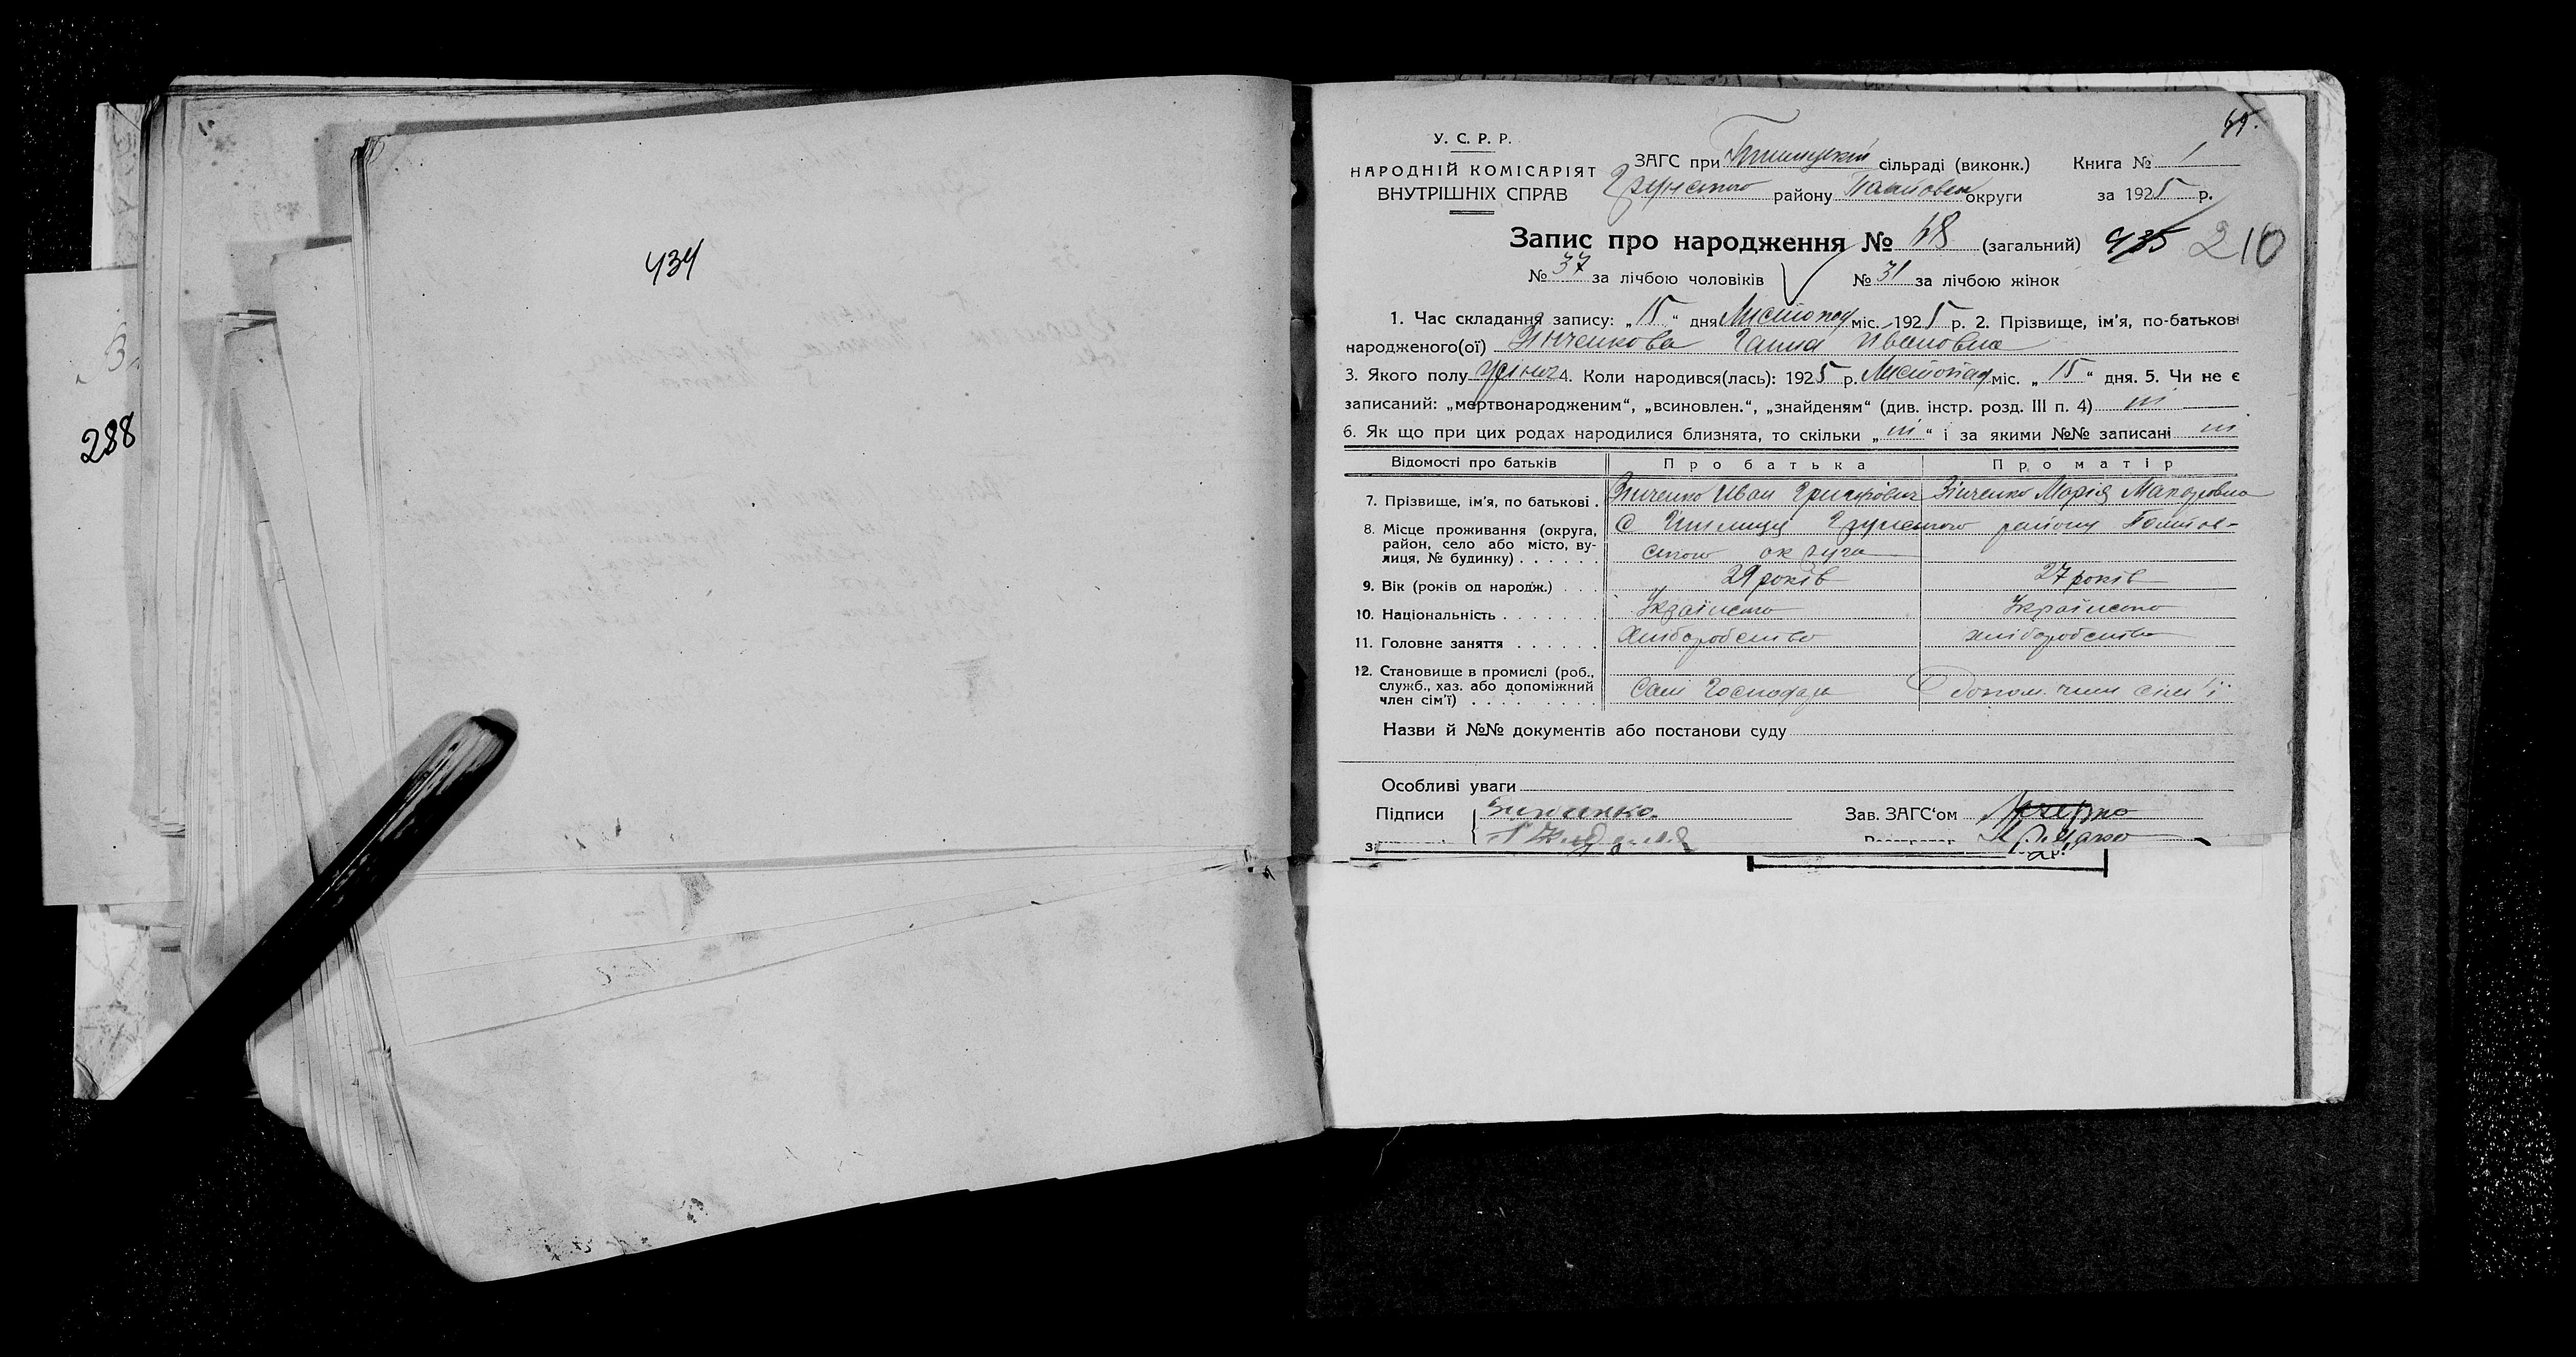 288
434
У. С. Р. Р.
НАРОДНІЙ КОМІСАРІЯТ
ВНУТРІШНІХ СПРАВ
ЗАГС при сільраді (виконк.) Книга № 1
Грунського району округи за 1925 р.
Запис про народження № 68 (загальний) 435 210
№ 37 за лічбою чоловіків № 31 за лічбою жінок
1. Час складання запису: „ 15 “ дня Листопад міс. 1925 р. 2. Прізвище, ім'я, по-батькові
народженого(ої) Зінченкова Ганна Івановна
3. Якого полу 4. Коли народився(лась): 1925 р. Листопад міс. „ 15 “ дня. 5. Чи не є
записаний: „мертвонародженим“, „всиновлен.“, „знайденям“ (див. інстр. розд. III п. 4) ні
6. Як що при цих родах народилися близнята, то скільки „ ні “ і за якими №№ записані ні
Відомості про батьків Про батька Про матір
7. Прізвище, ім'я, по батькові . Зінченко Иван Григорович Зінченко Марія Макаровна
8. Місце проживання (округа, район, село або місто, вулиця, № будинку) . . . . . . С Грунського району Полтов-
ського округа
9. Вік (років од народж.) . . . 29 років 27 років
10. Національність . . . . . . . Українська Українська
11. Головне заняття . . . . . . хліборобство хліборобство
12. Становище в промислі (роб., служб., хаз. або допоміжний член сім'ї) . . . . . . . . . Сам Господарь Допом. член сім'ї
Назви й №№ документів або постанови суду
Особливі уваги
Підписи Зинченко Зав. ЗАГС'ом